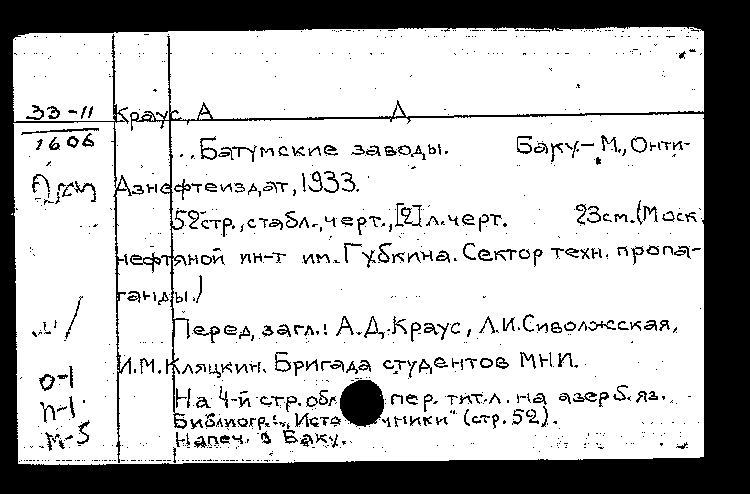 33-11 Краус, А Д,
1606
...Батумские заводы. Баку-М., Онти-
Азнефтеиздат, 1933.
52стр., стабл., черт., [2] л.черт. 23см. (Моск.
нефтяной ин-т им. Губкина. Сектор техн. пропа-
ганды.)
Перед загл.: А.Д. Краус, Л.И.Сиволжсская,
И.М.Кляцкин. Бригада студентов МНИ.
О-1
На 4-й стр. обл пер. тит.л. на азерб. яз.
п-1
Библиогр.: „Исто чники" (стр. 52).
м-5
Напеч. в Баку.